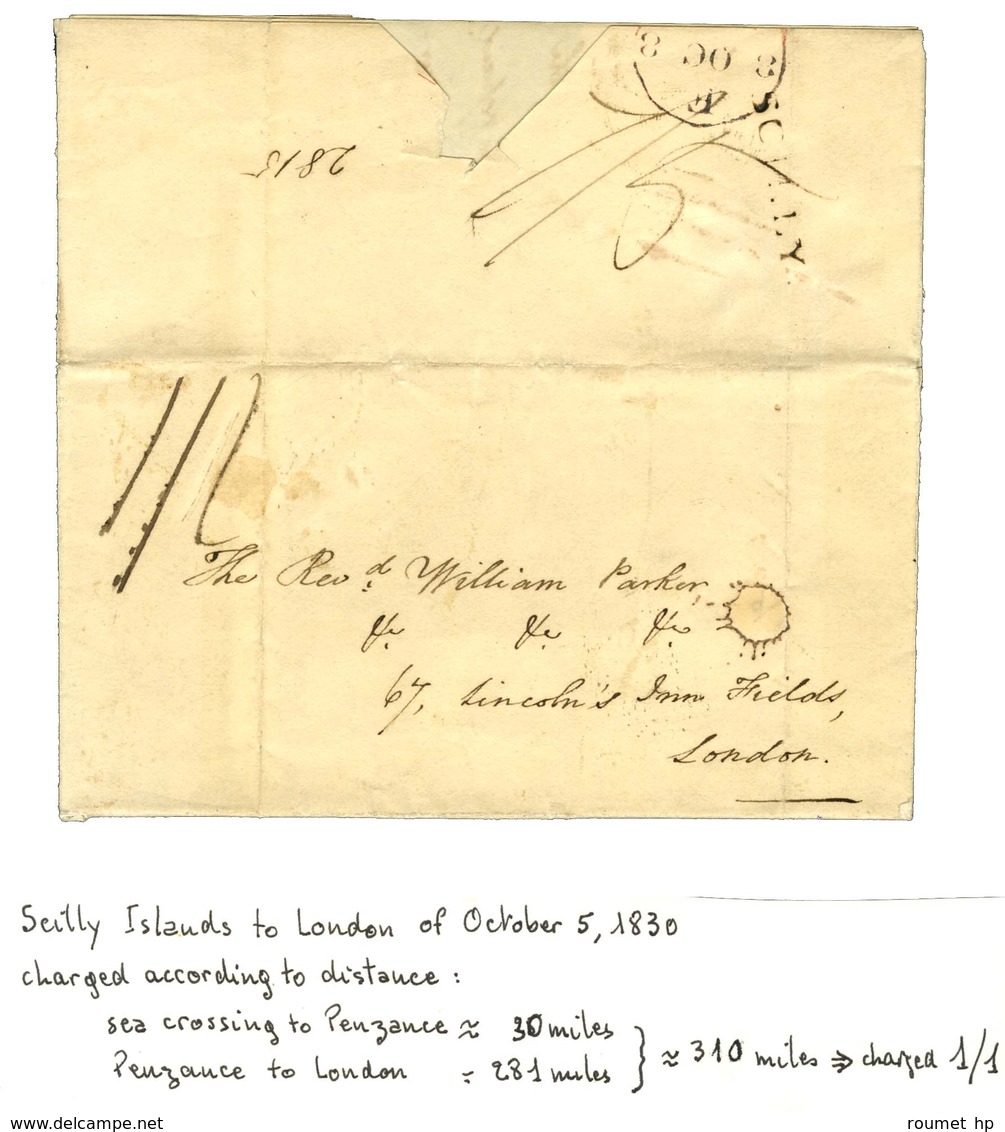 8 OC 8
SCILLY
2815
The Revd. William Parker
&c &c &c
67, Lincoln's Inn Fields,
London.
Scilly Islands to London of October 5, 1830
charged according to distance :
sea crossing to Penzance ≈ 30 miles
Penzance to London ≈ 281 miles } ≈ 310 miles ⇒ charged 1/1
www.delcampe.net
roumet hp